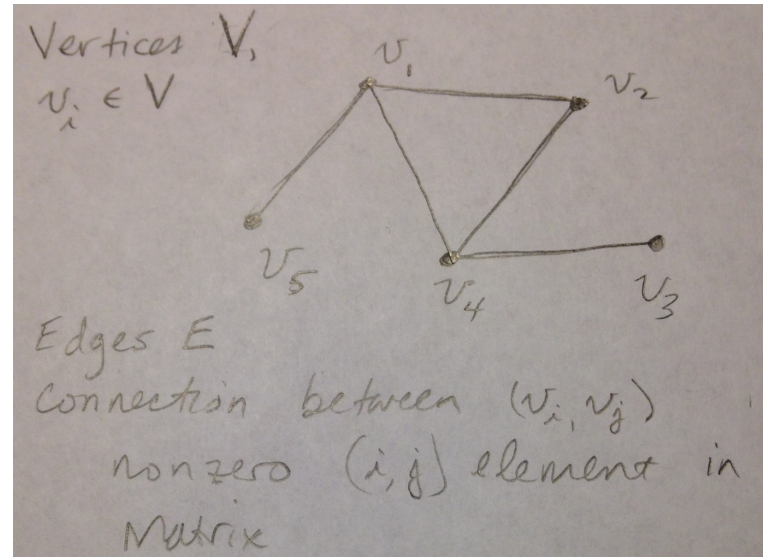 Vertices V,
v₁
v₂
vᵢ ∈ V
v₅
v₄
v₃
Edges E
Connection between (vᵢ, vⱼ)
nonzero (i,j) element in
Matrix